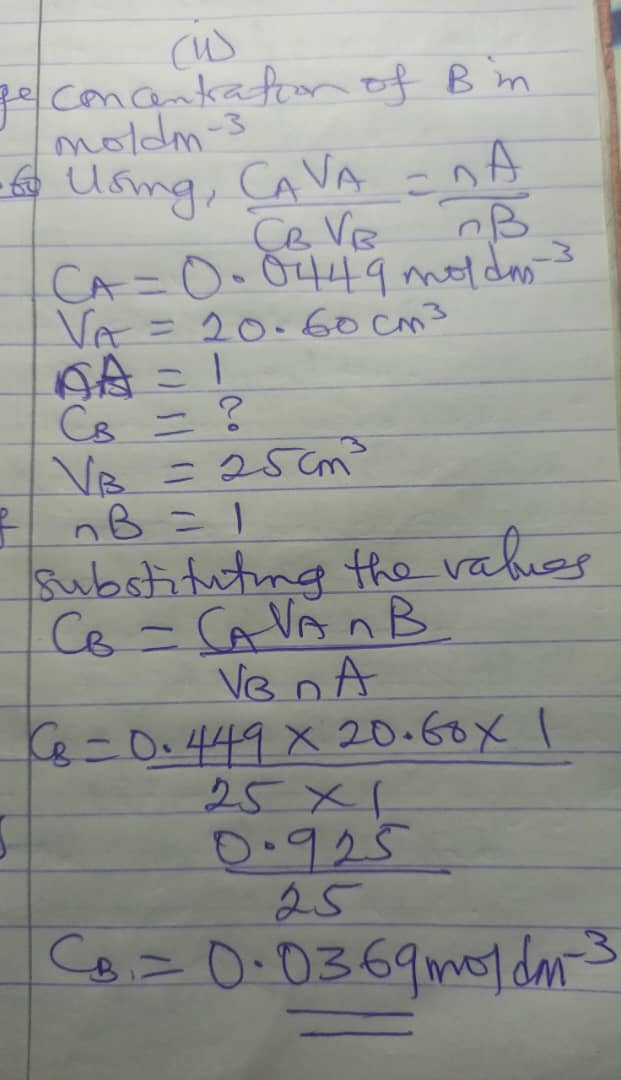 (ii)
Concentration of B in
moldm-3
Using, CAVA = nA
CBVB nB
CA = 0.0449 moldm-3
VA = 20.60 cm3
nA = 1
CB = ?
VB = 25cm3
nB = 1
substituting the values
CB = CAVA nB
VB nA
CB = 0.449 x 20.60 x 1
25 x 1
0.925
25
CB = 0.0369moldm-3